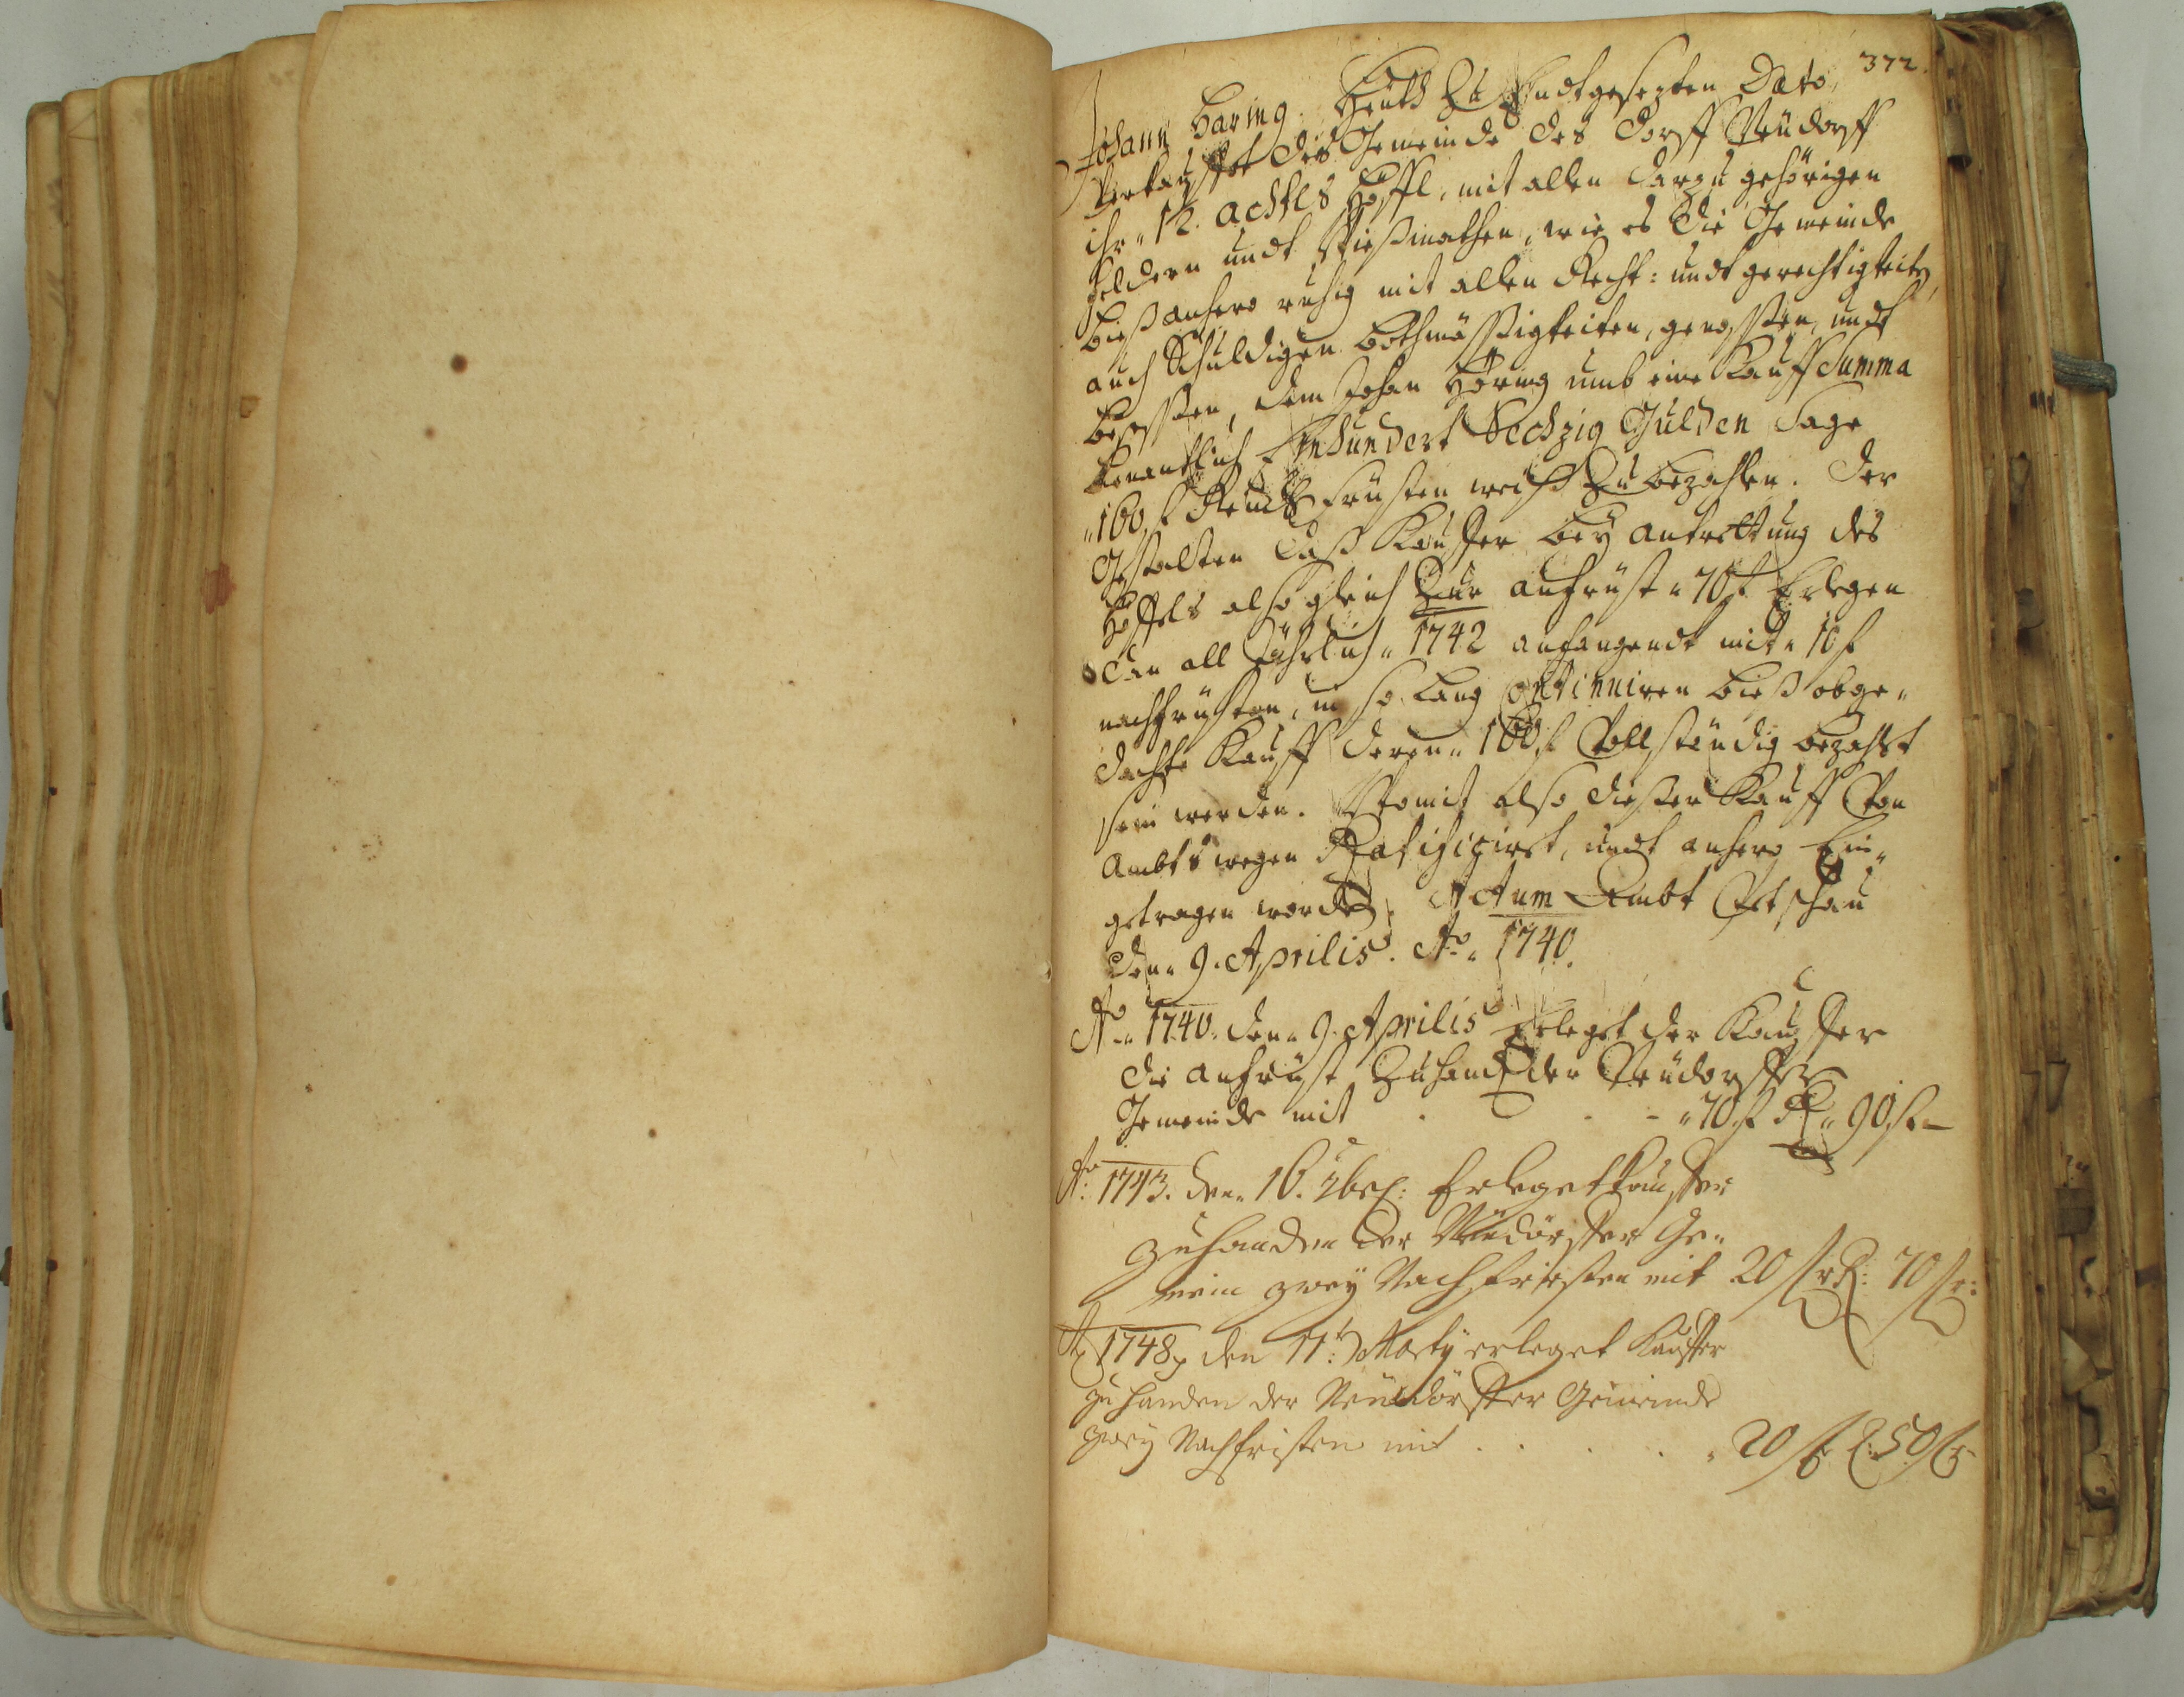 372.
Johann Haring. Heüth Zu Endtgesezten Dato,
Verkauffet die Gemeinde des dorff Neüdorff
ihr " 12. achtls Höffl, mit allen darzu gehörigen
feldern undt Wießmathen, wie es die Gemeinde
bieß anhero ruhig mit allen Recht: undt gerechtigkeiten,
auch Schuldigen Bothmässigkeiten, genossen, undt
besessen, dem Johan Höring umb eine Kauff Summa
benantlich Einhundert Sechzig Gulden Sage
" 160 f Reinl. früsten weiß Zu bezahlen. Der
Gestalten daß Kauffer bey antrettung des
Höffels alsogleich Zur anfrüst " 70 f Erlegen
dan all Jährlich " 1742 anfangendt mit " 10 f
nachfrüsten, u so lang Continuiren bieß obge"
dachte Kauff deren " 160 f Vollständig bezahlt
sein werden. Womit also dießer Kauff Von
Ambts wegen Ratificirt, undt anhero Ein"
getragen worden. Actum Ambt
den " 9. Aprilis. Ao " 1740.
Ao " 1740. den " 9. Aprilis Erleget der Kauffer
die anfrüst Zuhanden der Neüdorffer
Gemeinde mit . - - " 70 f R " 90 f –
Ao 1743. den " 16. 9bris: Erleget kauffer
zuhanden der Neüdorffer Ge"
mein zwey Nachfriesten mit 20 f R: 70 f:
Ao 1748 den 11t: Marty erleget Kauffer
zu handen der Neüdörffer Gemeinde
zwey Nachfristen mit . . . . " 20 f R: 50 f